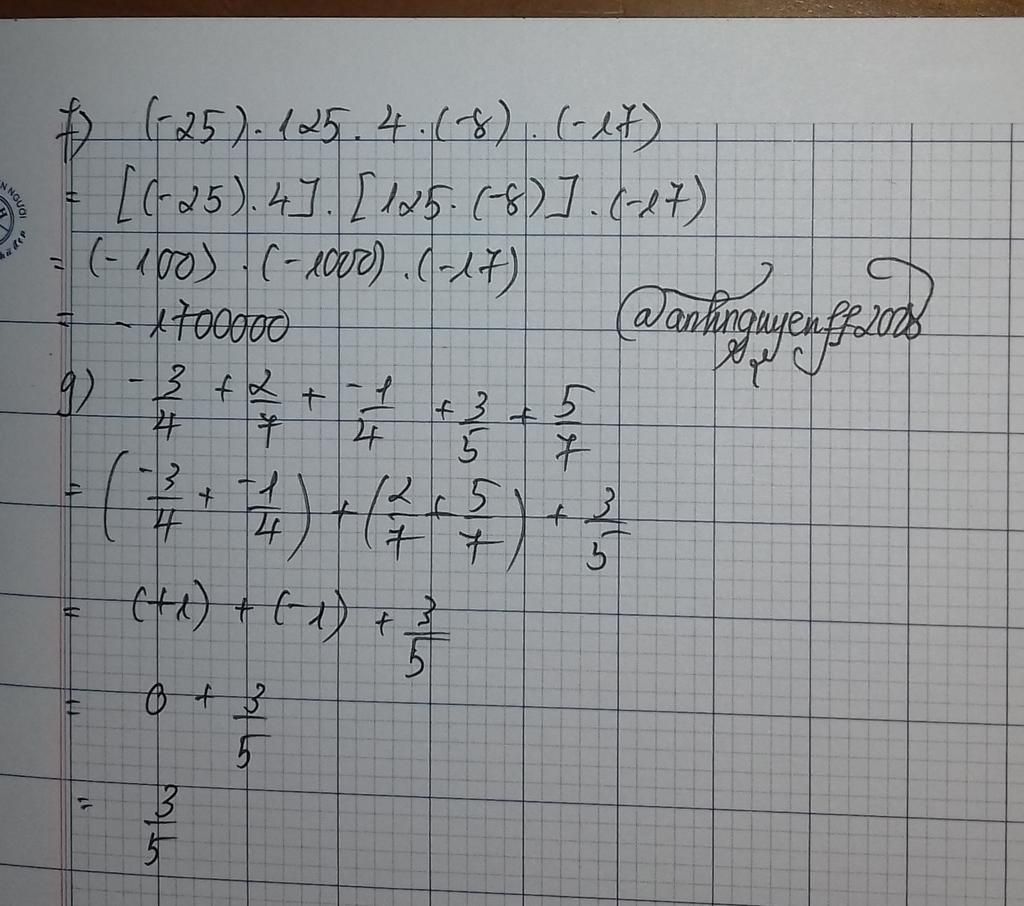 f) (-25) . 125 . 4 . (-8) . (-17)
= [(-25) . 4] . [125 . (-8)] . (-17)
= (-100) . (-1000) . (-17)
= -1700000
@anhnguyenff2008
g) -3/4 + 2/7 + -1/4 + 3/5 + 5/7
= (-3/4 + -1/4) + (2/7 + 5/7) + 3/5
= (+1) + (-1) + 3/5
= 0 + 3/5
= 3/5